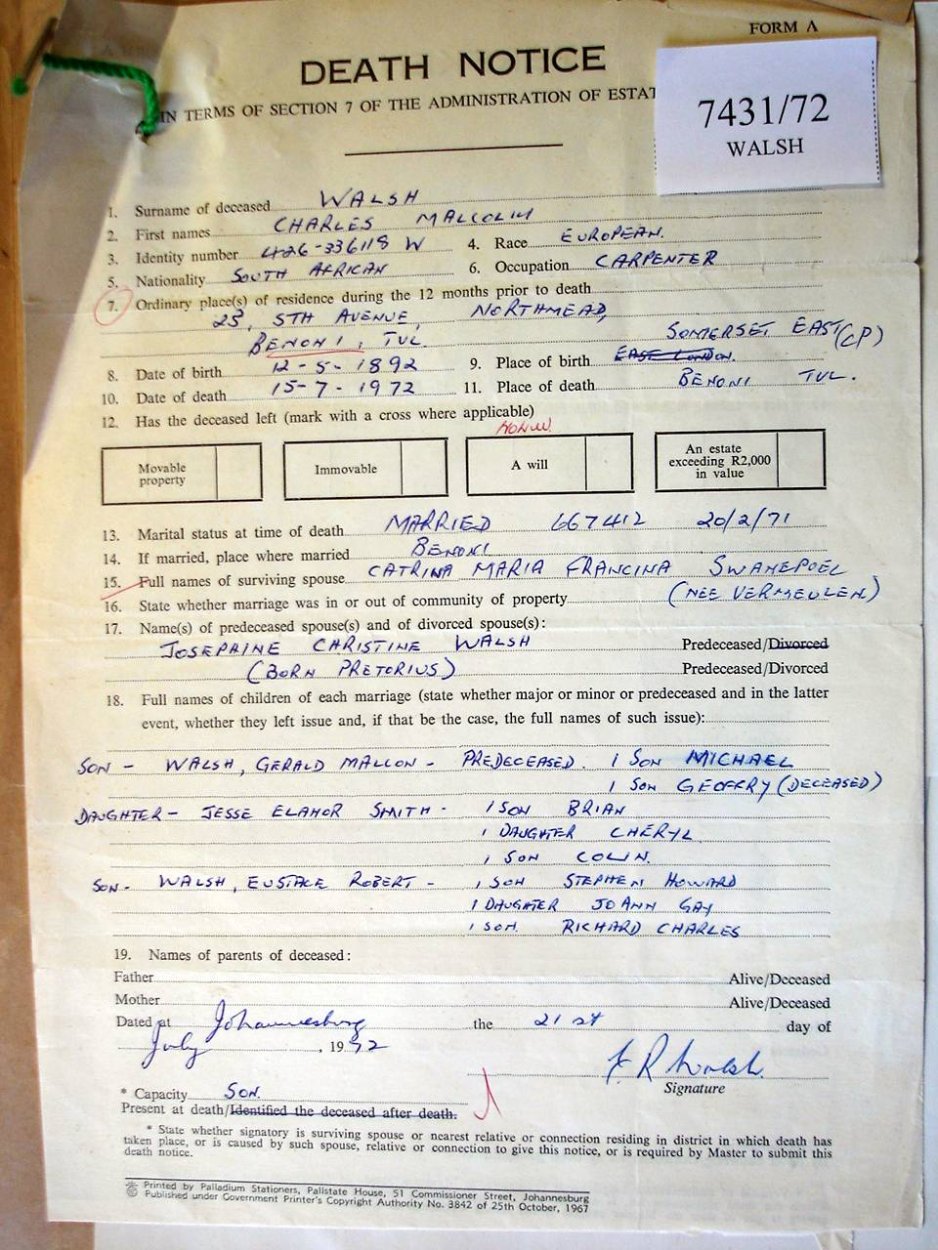 FORM A
DEATH NOTICE
IN TERMS OF SECTION 7 OF THE ADMINISTRATION OF ESTAT
7431/72
WALSH
1. Surname of deceased WALSH
2. First names CHARLES MALCOLM
3. Identity number 426-336118 W 4. Race EUROPEAN.
5. Nationality SOUTH AFRICAN 6. Occupation CARPENTER
7. Ordinary place(s) of residence during the 12 months prior to death
23, 5TH AVENUE, NORTHMEAD,
BENONI, TVL. SOMERSET EAST (CP)
8. Date of birth 12-5-1892 9. Place of birth EAST LONDON.
10. Date of death 15-7-1972 11. Place of death BENONI TVL.
12. Has the deceased left (mark with a cross where applicable)
Movable property Immovable A will An estate exceeding R2,000 in value
13. Marital status at time of death MARRIED 667412 20/2/71
14. If married, place where married BENONI
15. Full names of surviving spouse CATRINA MARIA FRANCINA SWANEPOEL
16. State whether marriage was in or out of community of property (NEE VERMEULEN)
17. Name(s) of predeceased spouse(s) and of divorced spouse(s):
JOSEPHINE CHRISTINE WALSH Predeceased/Divorced
(BORN PRETORIUS) Predeceased/Divorced
18. Full names of children of each marriage (state whether major or minor or predeceased and in the latter
event, whether they left issue and, if that be the case, the full names of such issue):
SON - WALSH, GERALD MALLON - PREDECEASED. 1 SON MICHAEL
1 SON GEOFFRY (DECEASED)
DAUGHTER - JESSE ELANOR SMITH - 1 SON BRIAN
1 DAUGHTER CHERYL
1 SON COLIN.
SON - WALSH, EUSTACE ROBERT - 1 SON STEPHEN HOWARD
1 DAUGHTER JOANN GAY
1 SON. RICHARD CHARLES
19. Names of parents of deceased:
Father Alive/Deceased
Mother Alive/Deceased
Dated at Johannesburg the 21st day of
July, 1972
Signature
* Capacity SON.
Present at death/Identified the deceased after death.
* State whether signatory is surviving spouse or nearest relative or connection residing in district in which death has
taken place, or is caused by such spouse, relative or connection to give this notice, or is required by Master to submit this
death notice.
Printed by Palladium Stationers, Pallstate House, 51 Commissioner Street, Johannesburg
© Published under Government Printer's Copyright Authority No. 3842 of 25th October, 1967